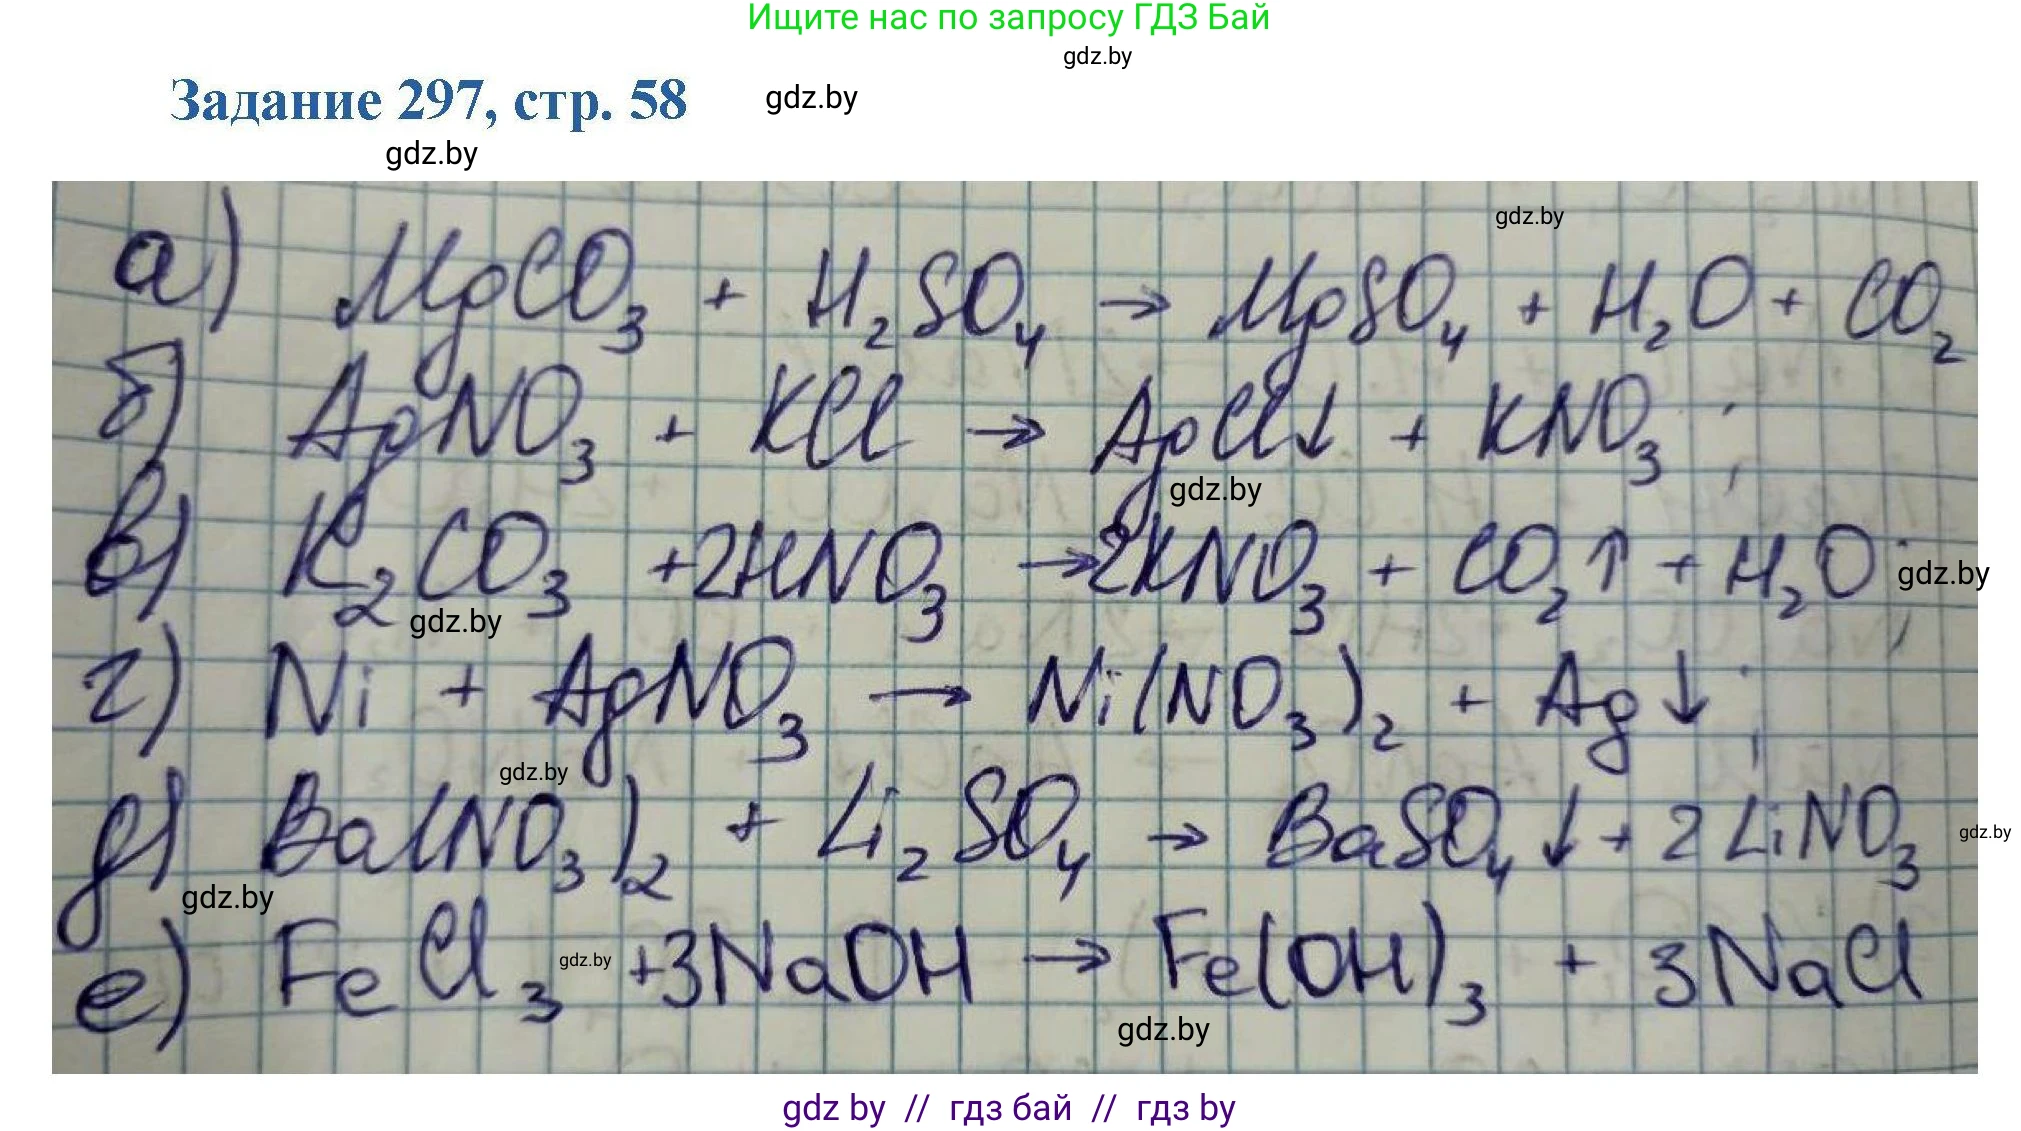 Ищите нас по запросу ГДЗ Бай
gdz.by
Задание 297, стр. 58
gdz.by
gdz.by
gdz.by
а) MgCO₃ + H₂SO₄ → MgSO₄ + H₂O + CO₂
б) AgNO₃ + KCl → AgCl↓ + KNO₃ ;
gdz.by
в) K₂CO₃ +2HNO₃ → 2KNO₃ + CO₂↑ + H₂O ;
gdz.by
gdz.by
г) Ni + AgNO₃ → Ni(NO₃)₂ + Ag↓ ;
gdz.by
д) Ba(NO₃)₂ + Li₂SO₄ → BaSO₄↓ + 2LiNO₃
gdz.by
gdz.by
е) FeCl₃ +3NaOH → Fe(OH)₃ + 3NaCl
gdz.by
gdz.by
gdz by // гдз бай // гдз by